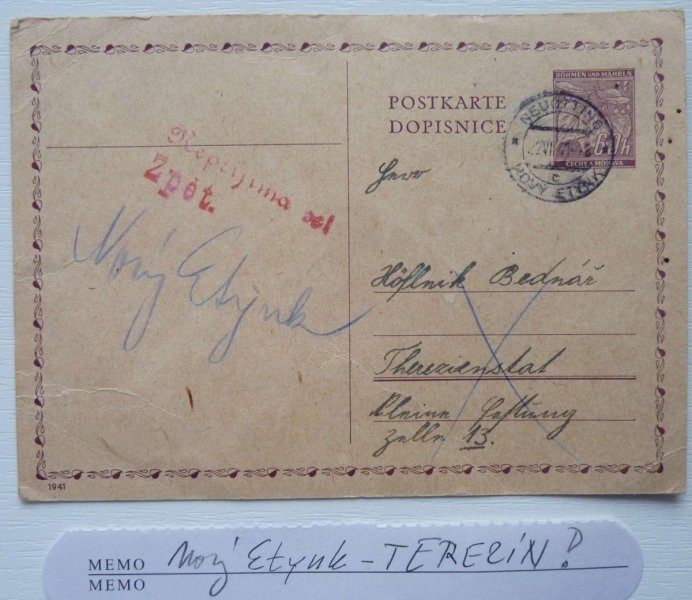 BÖHMEN UND MÄHREN
POSTKARTE
DOPISNICE
60h
ČECHY A MORAVA
NEUÖTTING
NOVÝ ETYNK
Nepřijímá se!
Zpět.
Nový Etynk
Herr
Höflnik Bednář
Therezienstat
kleine Festung
zelle 13.
1941
MEMO Nový Etynk - TEREZÍN!
MEMO